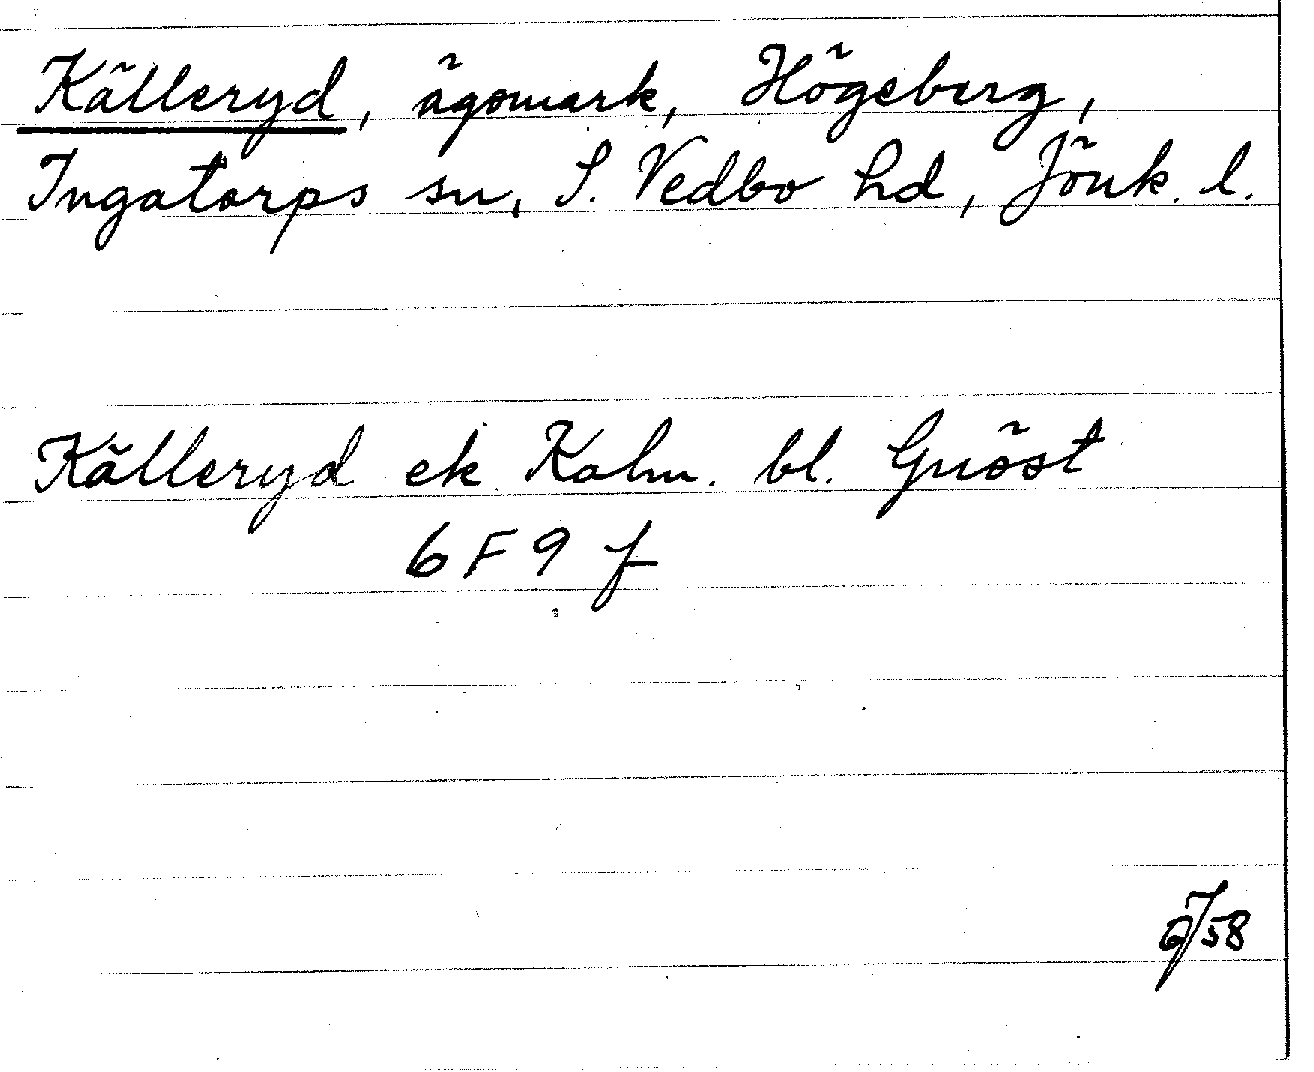 Källeryd, ägomark, Högeberg,
Ingatorps sn, S. Vedbo hd, Jönk. l.
Källeryd ek. Kalm. bl. Gnöst
6 F 9 f
58